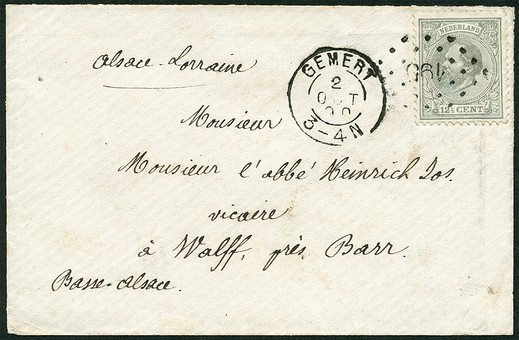 NEDERLAND
12½ CENT
GEMERT
2
OCT
90
3-4N
Alsace-Lorraine
Monsieur
Monsieur l'abbé Heinrich Jos.
vicaire
à Walff, près Barr.
Basse-Alsace.